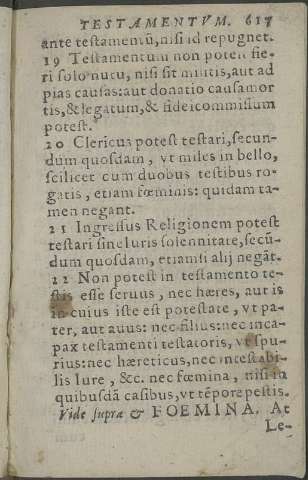 TESTAMENTVM. 617
ante testamentũ, nisi id repugnet.
19 Testamentum non potest fie-
ri solo nutu, nisi sit militis, aut ad
pias causas: aut donatio causa mor
tis, & legatum, & fideicommissum
potest.
20 Clericus potest testari, secun-
dum quosdam, vt miles in bello,
scilicet cum duobus testibus ro-
gatis, etiam fœminis: quidam ta-
men negant.
21 Ingressus Religionem potest
testari sine Iuris solennitate, secũ-
dum quosdam, etiamsi alij negãt.
22 Non potest in testamento te-
stis esse seruus, nec hæres, aut is
in cuius iste est potestate, vt pa-
ter, aut auus: nec filius: nec inca-
pax testamenti testatoris, vt spu-
rius: nec hæreticus, nec intestabi-
lis Iure, &c. nec fœmina, nisi in
quibusdã casibus, vt tẽpore pestis.
Vide supra & FOEMINA. At
Le-